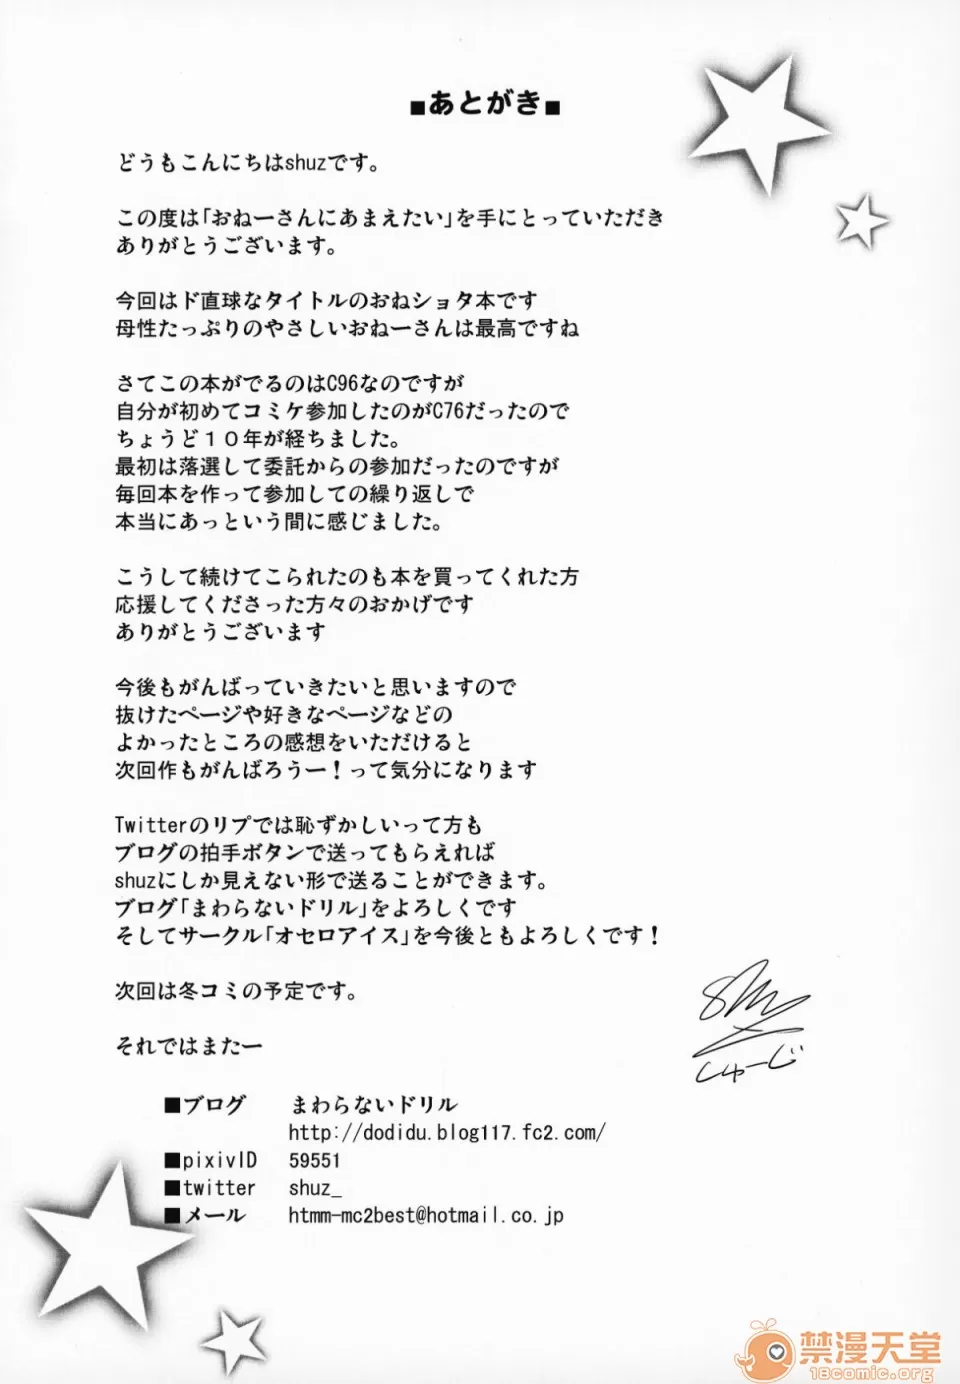 ■あとがき■
どうもこんにちはshuzです。
この度は「おねーさんにあまえたい」を手にとっていただき
ありがとうございます。
今回はド直球なタイトルのおねショタ本です
母性たっぷりのやさしいおねーさんは最高ですね
さてこの本がでるのはC96なのですが
自分が初めてコミケ参加したのがC76だったので
ちょうど１０年が経ちました。
最初は落選して委託からの参加だったのですが
毎回本を作って参加しての繰り返しで
本当にあっという間に感じました。
こうして続けてこられたのも本を買ってくれた方
応援してくださった方々のおかげです
ありがとうございます
今後もがんばっていきたいと思いますので
抜けたページや好きなページなどの
よかったところの感想をいただけると
次回作もがんばろうー！って気分になります
Twitterのリプでは恥ずかしいって方も
ブログの拍手ボタンで送ってもらえれば
shuzにしか見えない形で送ることができます。
ブログ「まわらないドリル」をよろしくです
そしてサークル「オセロアイス」を今後ともよろしくです！
次回は冬コミの予定です。
それではまたー
shuz
しゅーじ
■ブログ　まわらないドリル
http://dodidu.blog117.fc2.com/
■pixivID　59551
■twitter　shuz_
■メール　htmm-mc2best@hotmail.co.jp
禁漫天堂
18comic.org